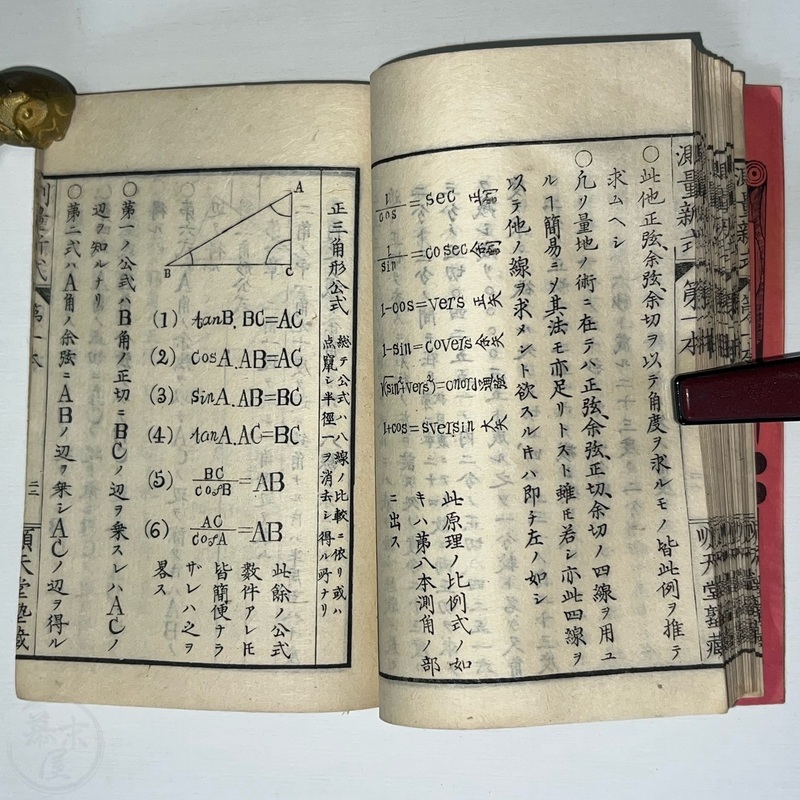 測量新式 第一本
順天堂塾蔵
○此他正弦、余弦、余切ヲ以テ角度ヲ求ルモノ皆此例ヲ推テ
求ムヘシ
○凢リ量地ノ術ニ在テハ正弦、余弦、正切、余切ノ四線ヲ用ユ
ルヿ簡易ニソ其法モ亦足リトスト雖モ若シ亦此四線ヲ
以テ他ノ線ヲ求メント欲スルキハ即チ左ノ如シ
1/cos=sec 正割
1/sin=cosec 余割
1-cos=vers 正矢
1-sin=covers 余矢
√(sin²+vers²)=chord
1+cos=sversin 大矢
此原理ノ比例式ノ如
キハ第八本測角ノ部
ニ出ス
正三角形公式
総テ公式ハ八線ノ比較ニ依リ或ハ
点竄シ半径一ヲ消去シ得ル所ナリ
A
B
C
(1) tanB.BC=AC
(2) cosA.AB=AC
(3) sinA.AB=BC
(4) tanA.AC=BC
(5) BC/cosB=AB
(6) AC/cosA=AB
此餘ノ公式
数件アレㇳモ
皆簡便ナラ
ザレハ之ヲ
畧ス
○第一ノ公式ハB角ノ正切ニBCノ辺ヲ乗スレハACノ
辺ヲ知ルナリ
○第二式ハA角ノ余弦ニABノ辺ヲ乗シACノ辺ヲ得ル
測量新式 第一本
三
順天堂塾蔵